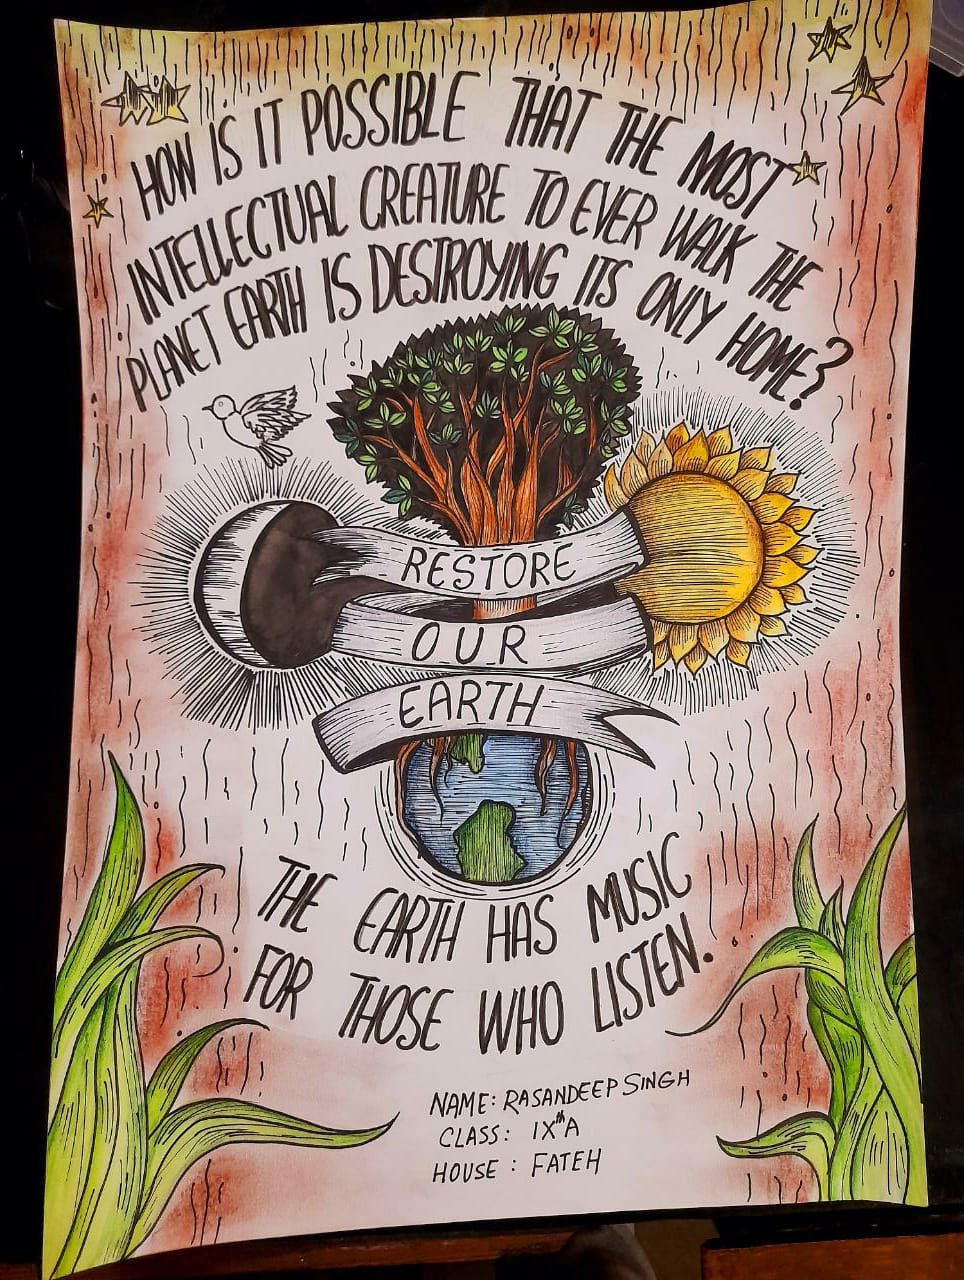 HOW IS IT POSSIBLE THAT THE MOST
INTELLECTUAL CREATURE TO EVER WALK THE
PLANET EARTH IS DESTROYING ITS ONLY HOME?
RESTORE
OUR
EARTH
THE EARTH HAS MUSIC
FOR THOSE WHO LISTEN.
NAME: RASANDEEP SINGH
CLASS: IXth A
HOUSE : FATEH